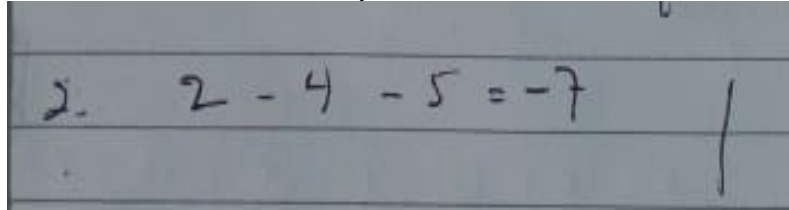 2. 2 - 4 - 5 = -7